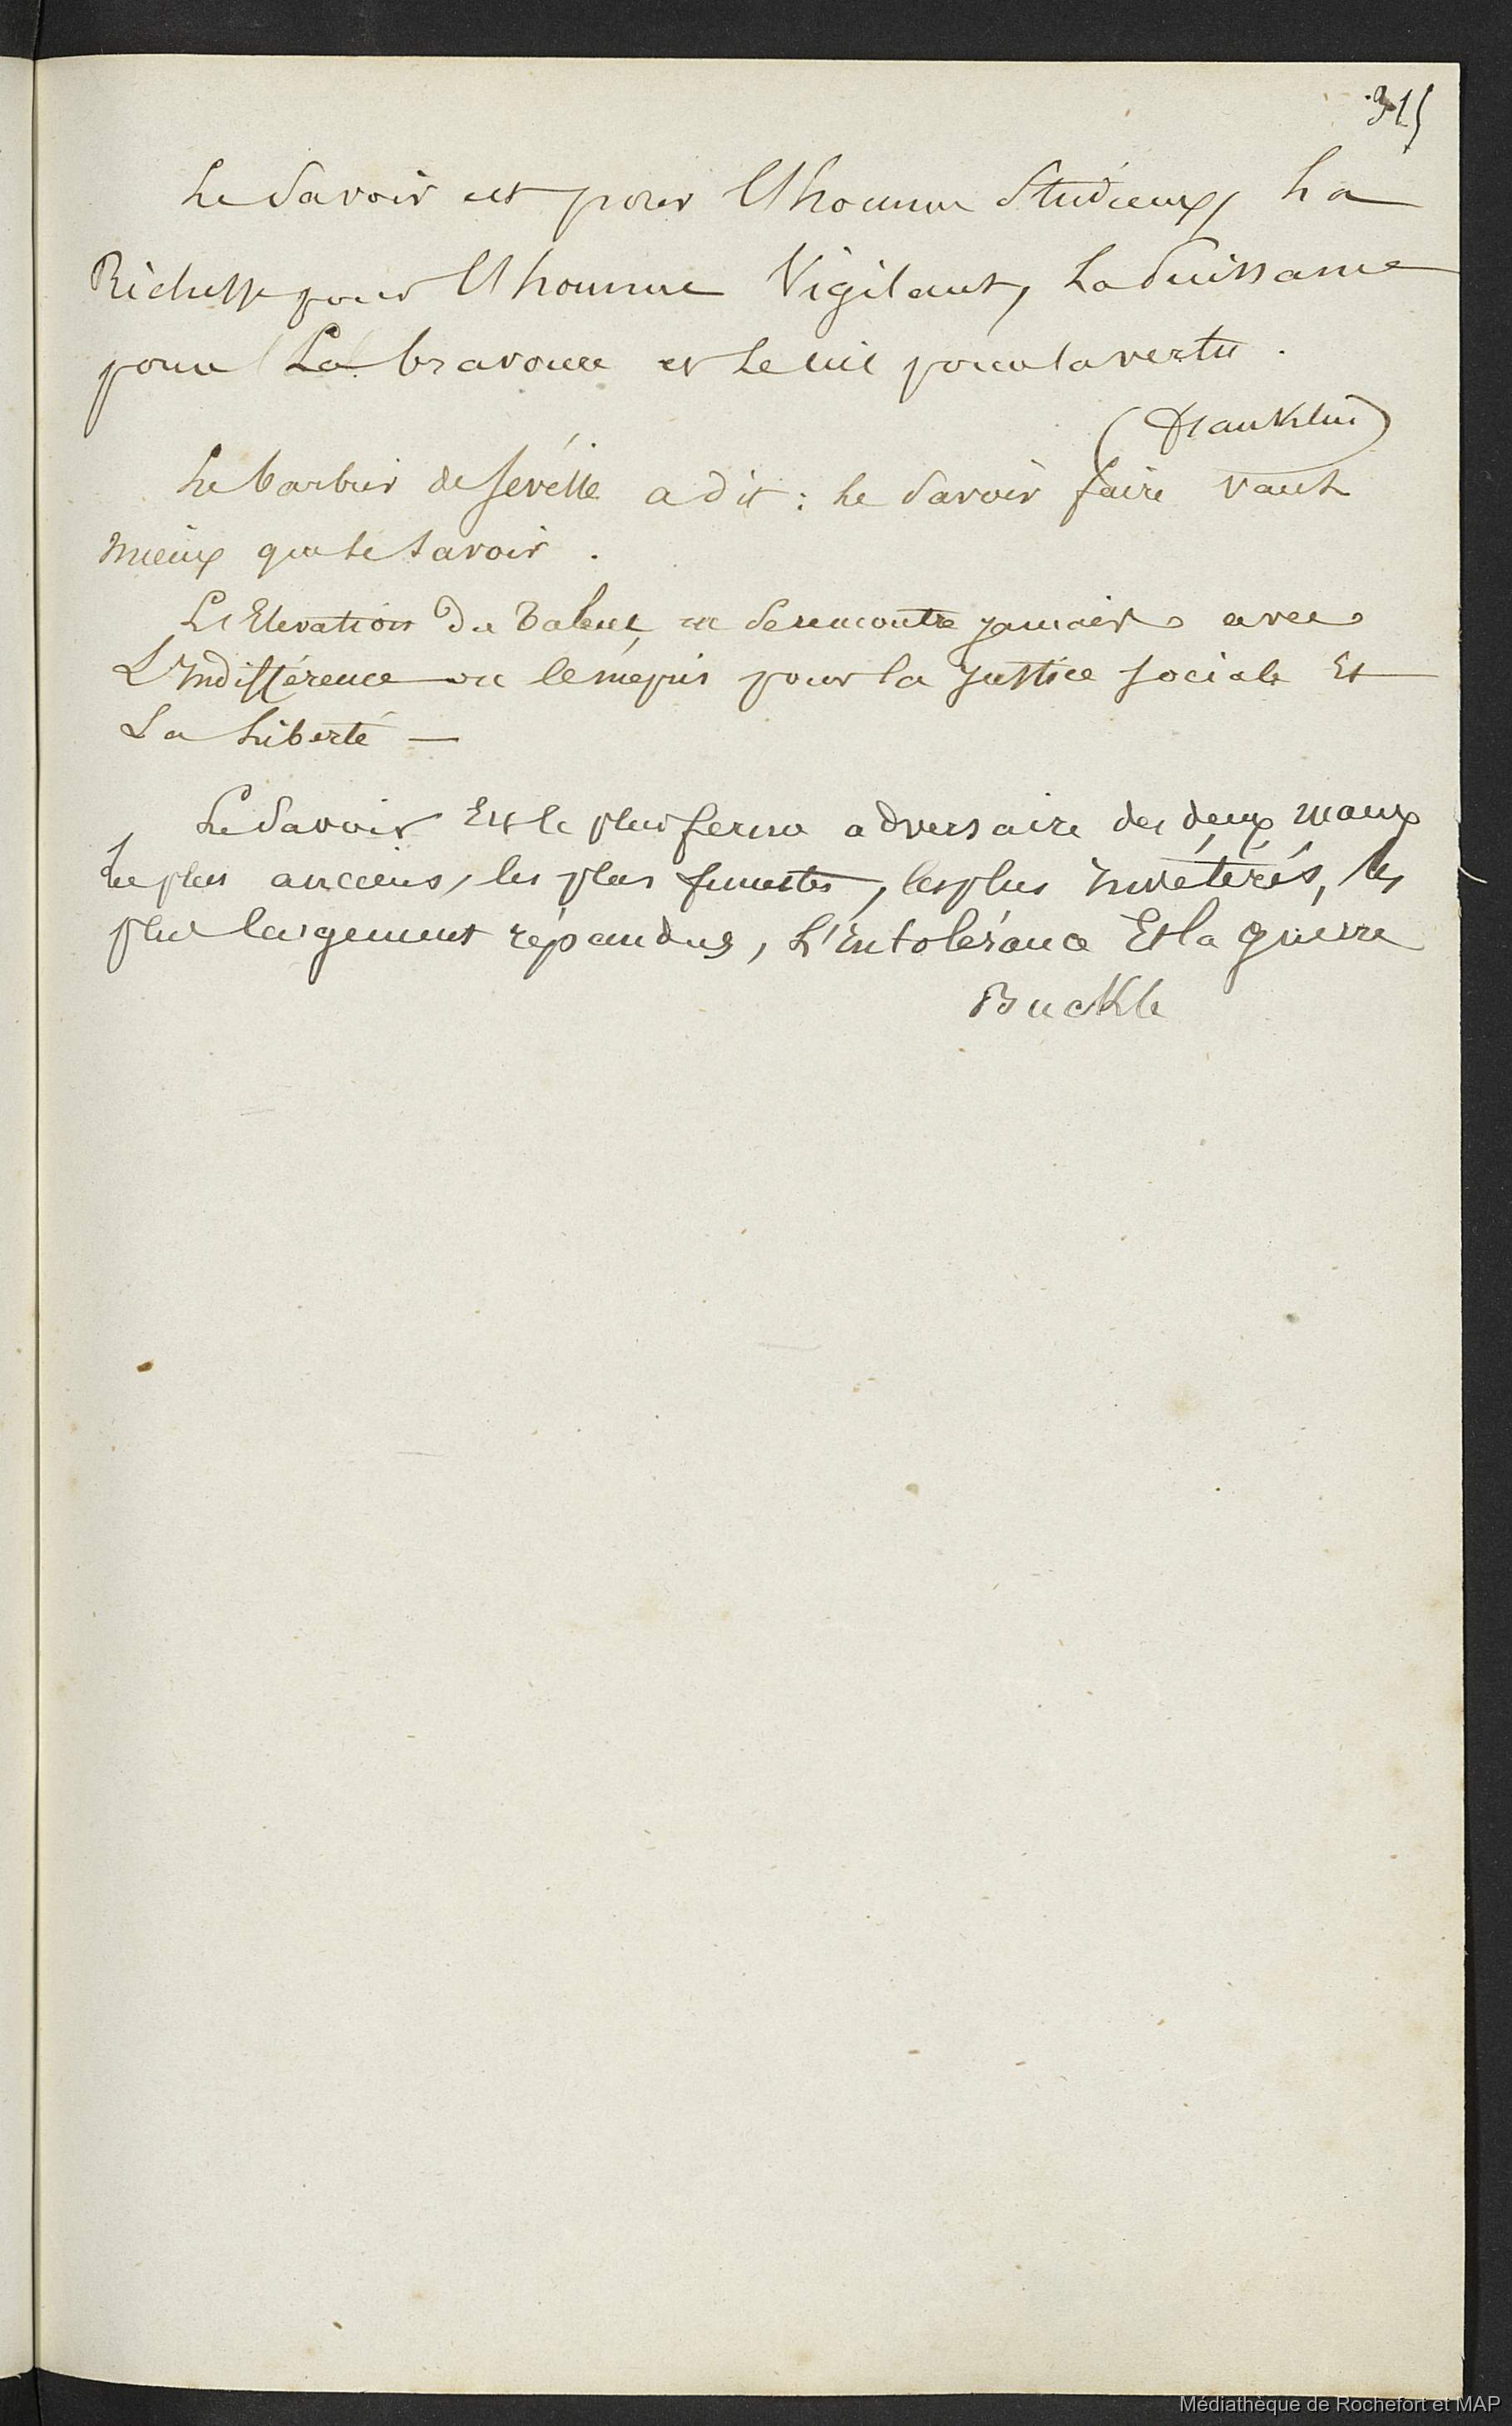 315
Le Savoir est pour L'homme Studieux, La
Richesse pour L'homme Vigilant, La Puissance
pour La bravoure et Le ciel pour la vertu.
(Franklin)
Le barbier de Séville a dit : Le Savoir faire vaut
mieux que le savoir.
L'Elévation du Talent ne se rencontre jamais avec
L'Indifférence ou le mépris pour la Justice sociale Et
La Liberté —
Le Savoir Est le plus ferme adversaire des deux maux
Les plus anciens, les plus funestes, les plus invétérés, les
plus largement répandus, L'intolérance Et la guerre
Buckle
Médiathèque de Rochefort et MAP